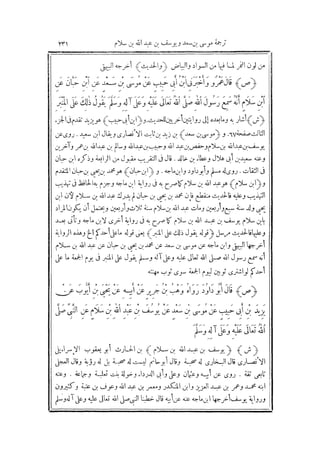 ترجمة موسى بن سعد ويوسف بن عبد الله بن سلام ٢٣١
من لون النمر لما فيها من السواد والبياض (والحديث) أخرجه البيهقى
(ص) قَالَ عَمْرٌو وَأَخْبَرَنِى ابْنُ أَبِى حَبِيبٍ عَنْ مُوسَى بْنِ سَعْدٍ عَنِ ابْنِ حَبَّانَ عَنِ
ابْنِ سَلَامٍ أَنَّهُ سَمِعَ رَسُولَ اللهِ صَلَّى اللهُ تَعَالَى عَلَيْهِ وَعَلَى آلِهِ وَسَلَّمَ يَقُولُ ذَلِكَ عَلَى الْمِنْبَرِ
(ش) أشار به وما بعده إلى روايتين أخريين للحديث. و(ابن أبى حبيب) هو يزيد تقدم فى الجزء
الثالث صفحة ٦٧. و (موسى بن سعد) بن زيد بن ثابت الأنصارى ويقال ابن سعيد. روى عن
يوسف بن عبد الله بن سلام وحفص بن عبد الله وحبيب بن عبد الله وسالم بن عبد الله بن عمر وآخرين
وعنه سعيد بن أبى هلال وعطاف بن خالد. قال فى التقريب مقبول من الرابعة وذكره ابن حبان
فى الثقات. روى له مسلم وأبو داود وابن ماجه. و (ابن حبان) هو محمد بن يحيى بن حبان المتقدم
و (ابن سلام) هو عبد الله بن سلام كما صرح به فى رواية ابن ماجه وجزم به الحافظ فى تهذيب
التهذيب وعليه فالحديث منقطع فإن محمد بن يحيى بن حبان لم يدرك عبد الله بن سلام لأن ابن
يحيى ولد سنة سبع وأربعين ومات عبد الله بن سلام سنة ثلاث وأربعين ويحتمل أن يكون المراد
بابن سلام يوسف بن عبد الله بن سلام كما صرح به فى رواية أخرى لابن ماجه وتأتى بعد
وعليها فالحديث مرسل (قوله يقول ذلك على المنبر) يعنى قوله ما على أحدكم الخ وهذه الرواية
أخرجها البيهقى وابن ماجه عن موسى بن سعد عن محمد بن يحيى بن حبان عن عبد الله بن سلام
أنه سمع رسول الله صلى الله تعالى عليه وعلى آله وسلم يقول على المنبر فى يوم الجمعة ما على
أحدكم لو اشترى ثوبين ليوم الجمعة سوى ثوب مهنته
(ص) قَالَ أَبُو دَاوُدَ وَرَوَاهُ وَهْبُ بْنُ جَرِيرٍ عَنْ أَبِيهِ عَنْ يَحْيَى بْنِ أَيُّوبَ عَنْ
يَزِيدَ بْنِ أَبِى حَبِيبٍ عَنْ مُوسَى بْنِ سَعْدٍ عَنْ يُوسُفَ بْنِ عَبْدِ اللهِ بْنِ سَلَامٍ عَنِ النَّبِىِّ صَلَّى
اللهُ تَعَالَى عَلَيْهِ وَعَلَى آلِهِ وَسَلَّمَ
(ش) (يوسف بن عبد الله بن سلام) بن الحارث أبو يعقوب الإسرائيلى
الأنصارى قال البخارى له صحبة وقال أبو حاتم ليست له صحبة بل له رؤية وقال العجلى
تابعى ثقة. روى عن أبيه وعثمان وعلى وأبى الدرداء وخولة بنت ثعلبة وجماعة. وعنه
ابنه محمد وعمر بن عبد العزيز وابن المنكدر ومعمر بن عبد الله وعوف بن عتبة وكثيرون
ورواية يوسف أخرجها ابن ماجه عنه عن أبيه قال خطبنا النبى صلى الله تعالى عليه وعلى آله وسلم